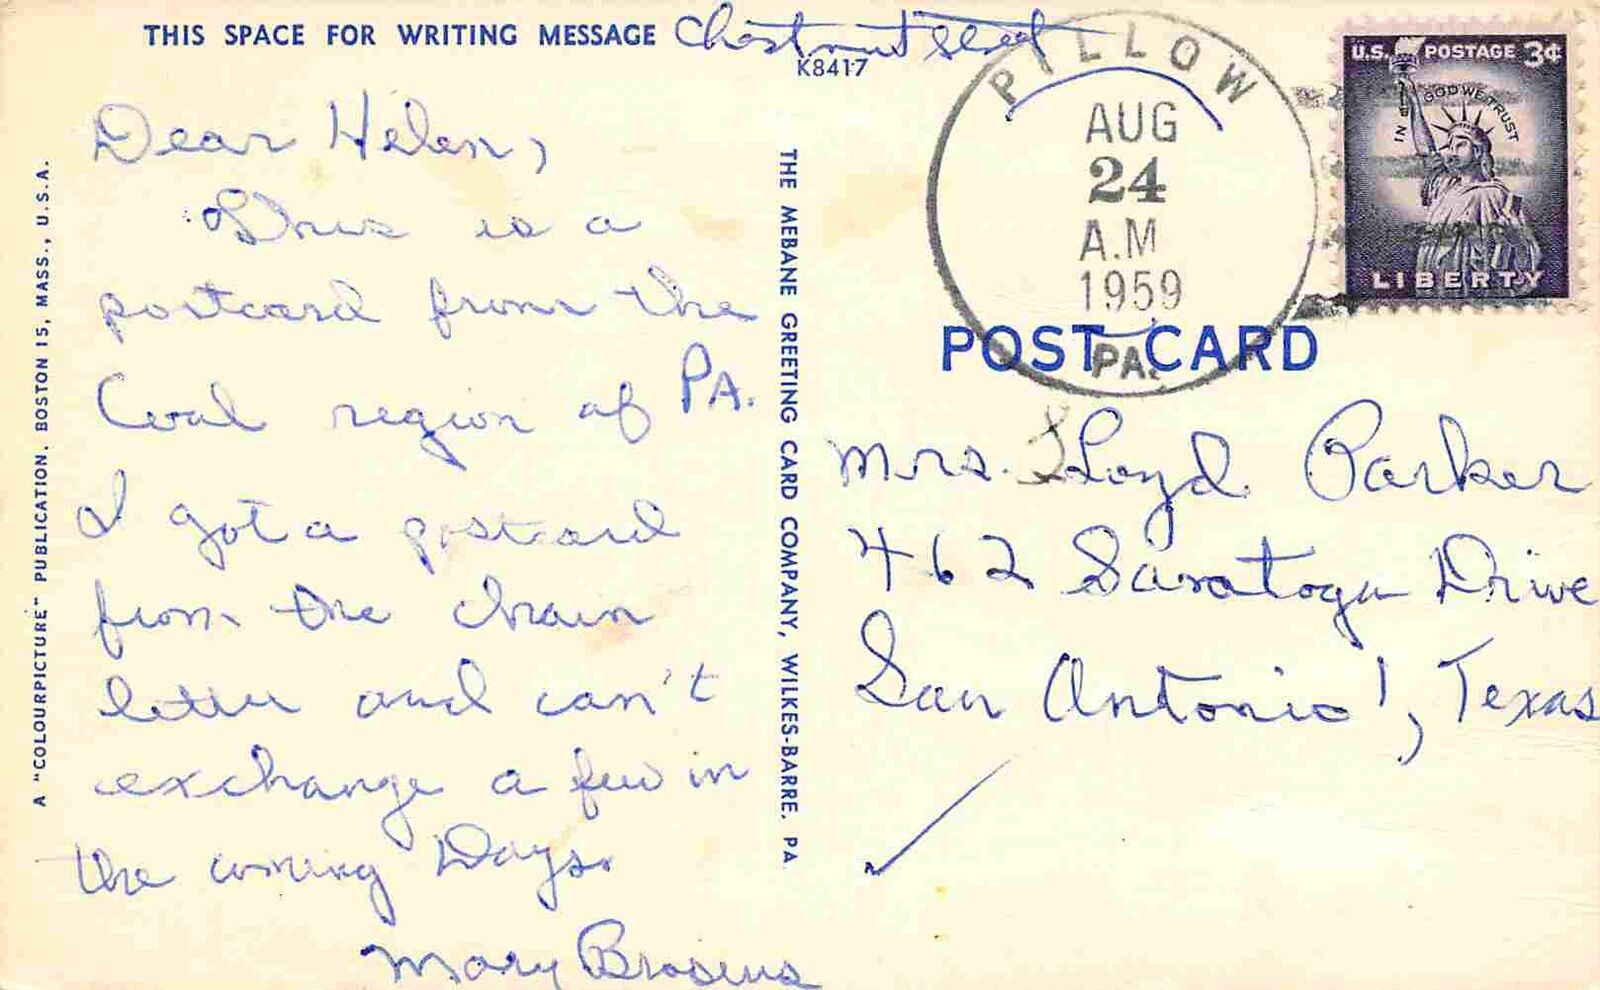 THIS SPACE FOR WRITING MESSAGE
Chestnut Street
K8417
Dear Helen,
This is a
postcard from the
Coal region of PA.
I got a postcard
from the chain
letter and can't
exchange a few in
the coming Days.
Mary
A "COLOURPICTURE" PUBLICATION, BOSTON 15, MASS., U.S.A.
THE MEBANE GREETING CARD COMPANY, WILKES-BARRE, PA
PILLOW
AUG
24
A.M
1959
PA.
U.S. POSTAGE 3¢
IN GOD WE TRUST
LIBERTY
POST CARD
Mrs. Lloyd Parker
462 Saratoga Drive
San Antonio 1, Texas